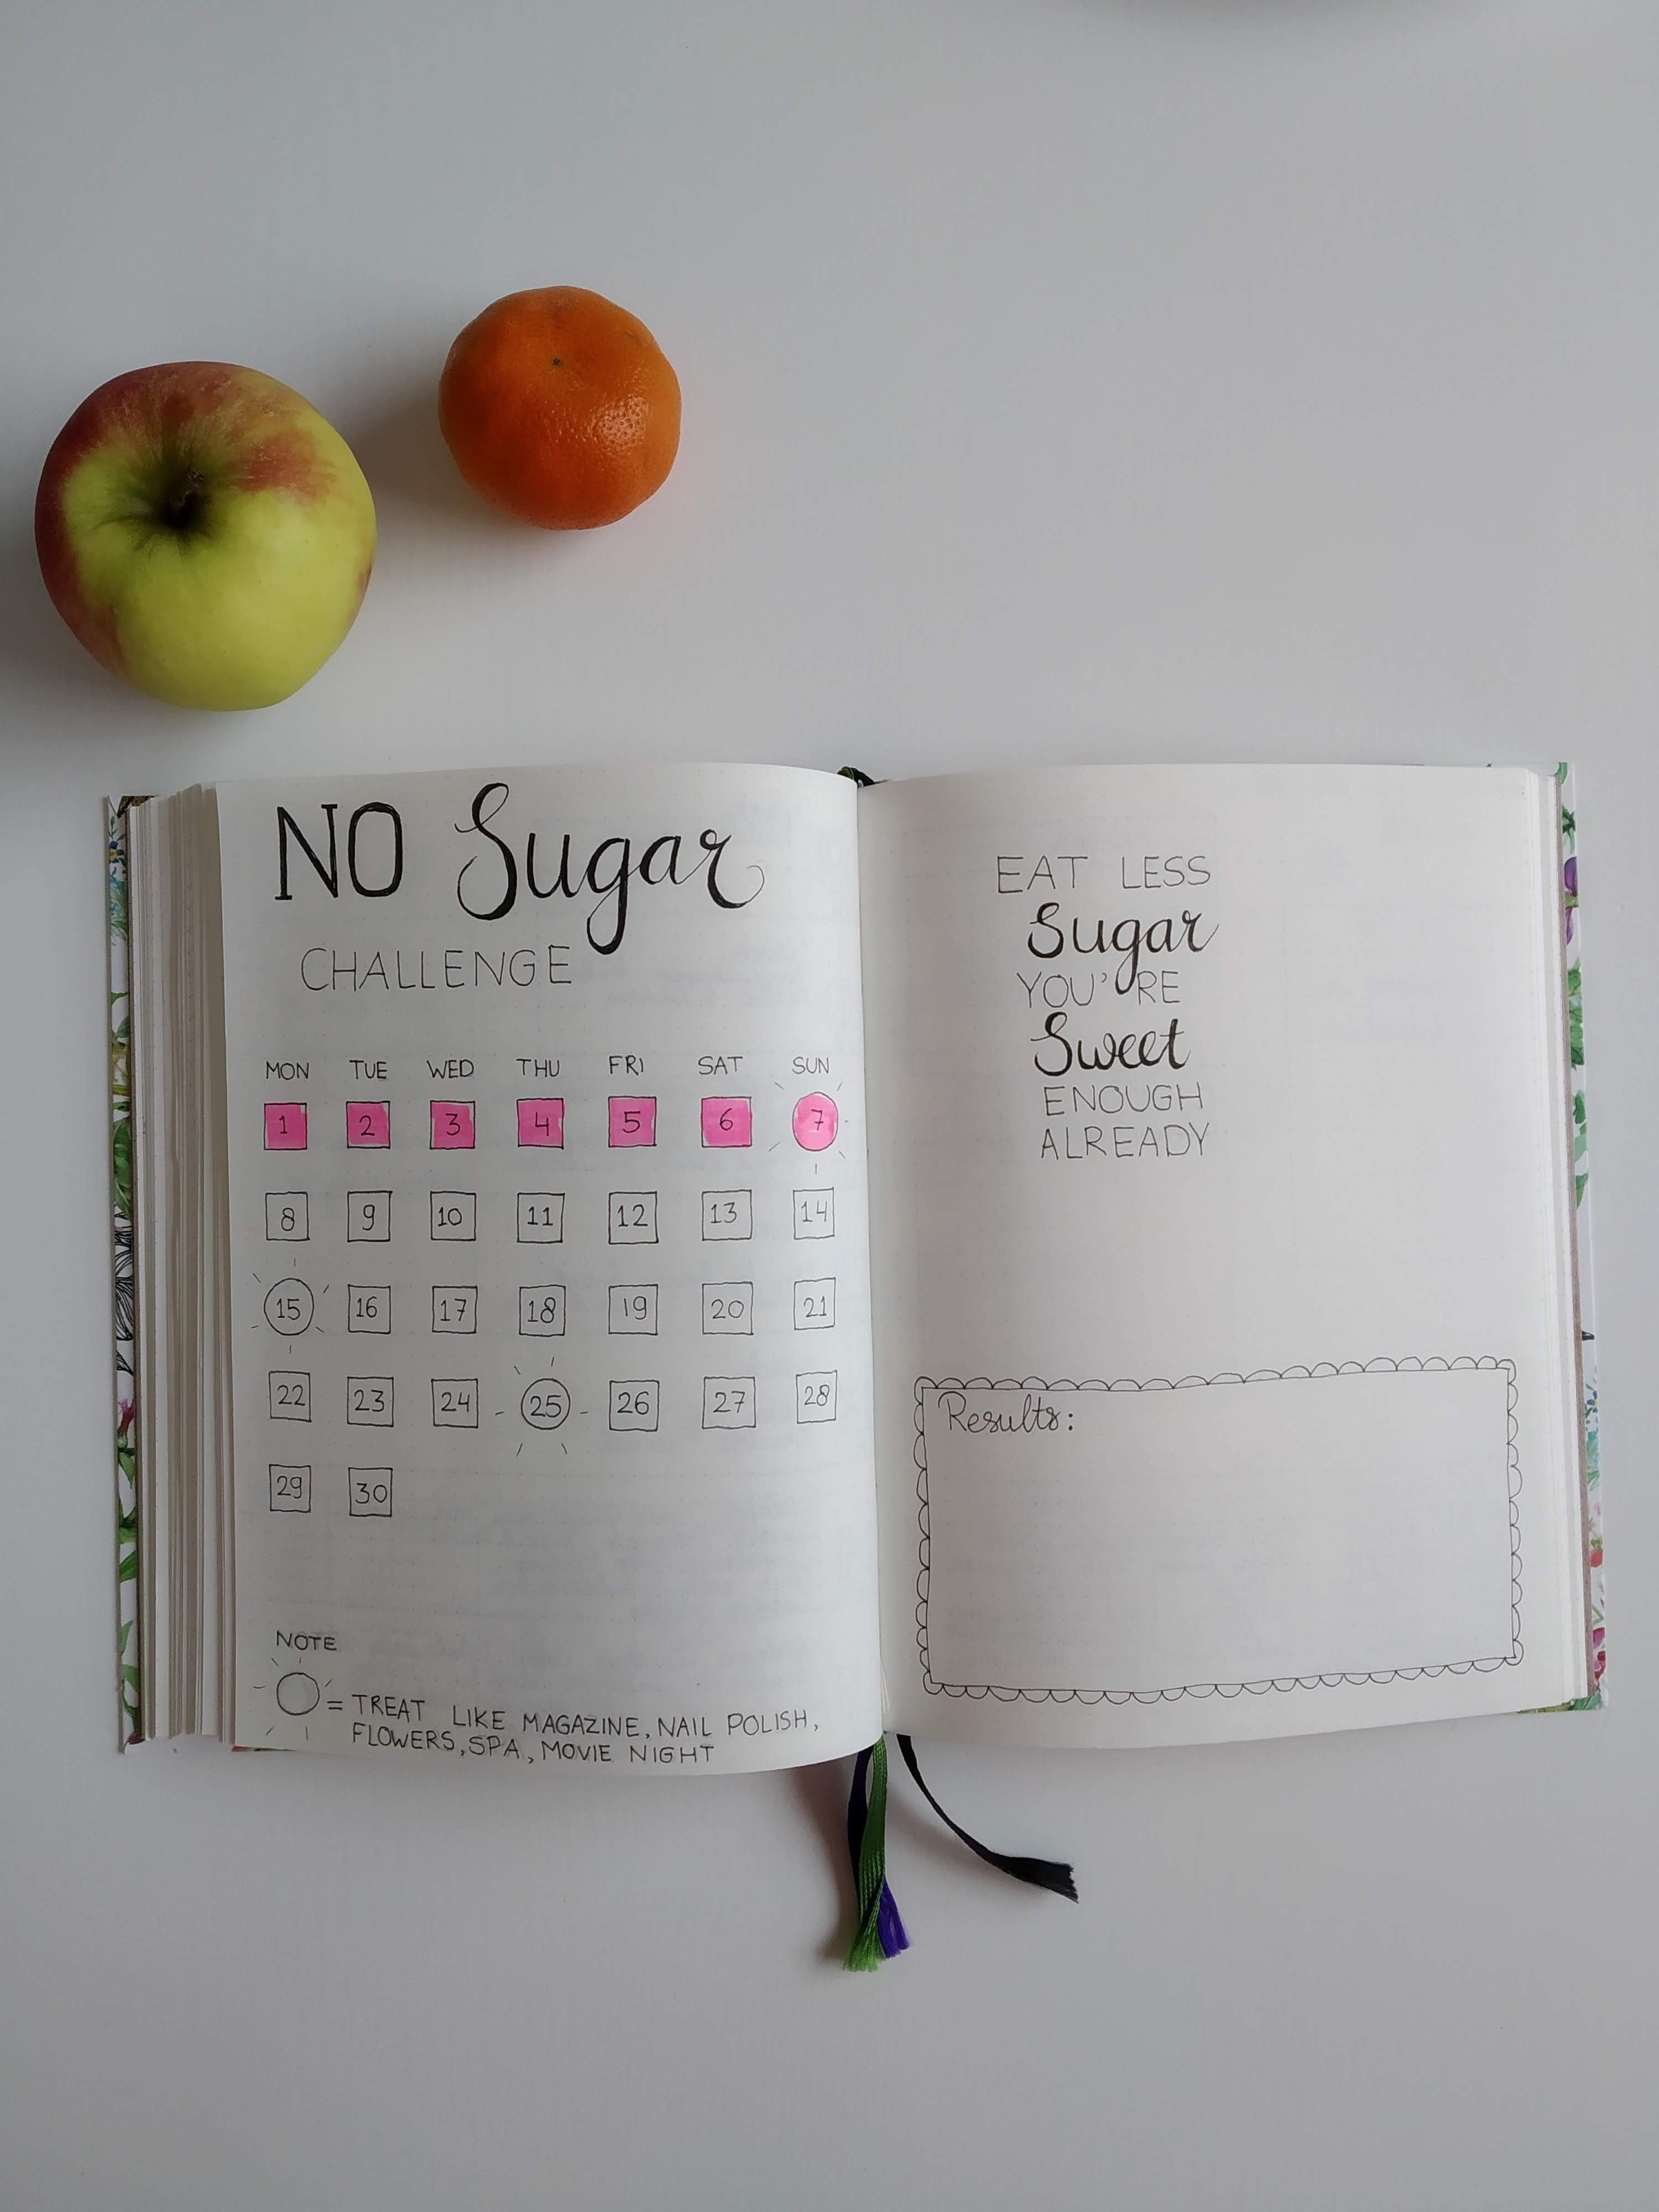 NO Sugar
CHALLENGE
MON TUE WED THU FRI SAT SUN
1 2 3 4 5 6 7
8 9 10 11 12 13 14
15 16 17 18 19 20 21
22 23 24 25 26 27 28
29 30
NOTE
= TREAT LIKE MAGAZINE, NAIL POLISH,
FLOWERS, SPA, MOVIE NIGHT
EAT LESS
Sugar
YOU'RE
Sweet
ENOUGH
ALREADY
Results: